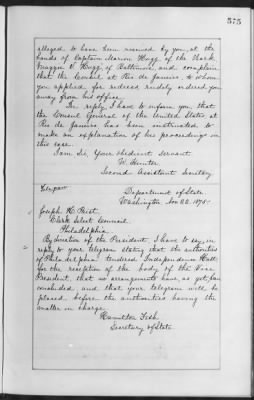 575
alleged to have been received by you, at the
hands of Captain Marion Hugg of the Bark
of Baltimore, and complain
that the Consul at Rio de Janeiro, to whom
you applied for redress rudely ordered you
away from his office.
In reply, I have to inform you, that
the Consul General of the United States at
Rio de Janeiro has been instructed to
make an explanation of his proceedings in
this case.
I am Sir, Your obedient servant
W. Hunter.
Second Assistant Secretary
Telegram
Department of State
Washington Nov. 22. 1875.
Joseph H. Paist,
Clerk Select Council.
Philadelphia.
By direction of the President, I have to say, in
reply to your telegram stating that the authorities
of Philadelphia tendered Independence Hall
for the reception of the body of the Vice
President, that no arrangements have, as yet, been
concluded and that your telegram will be
placed before the authorities having the
matter in charge.
Hamilton Fish
Secretary of State.